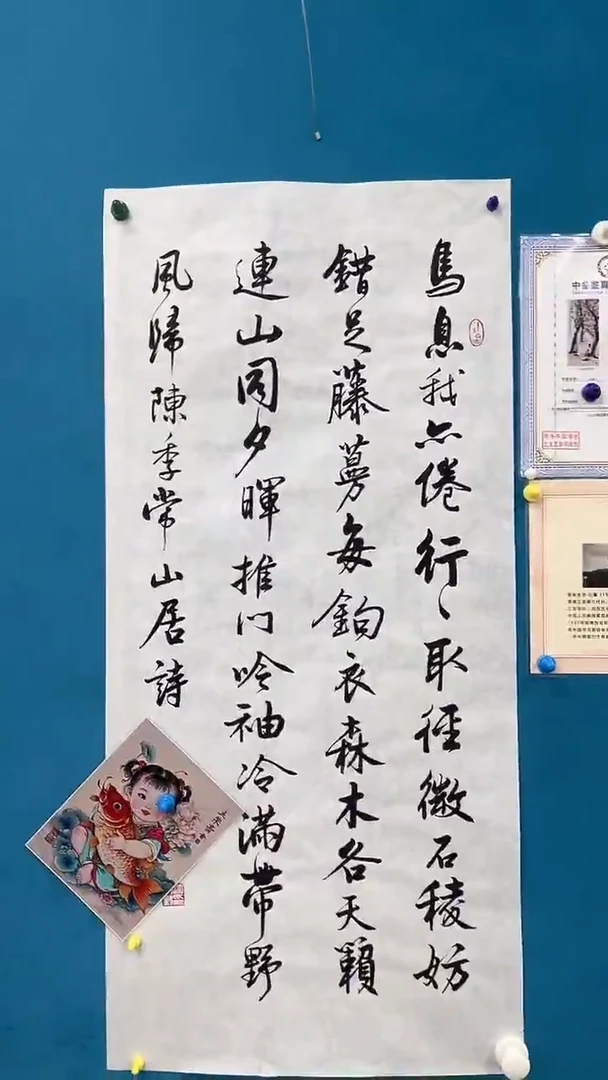 鳥息我亦倦行々取徑微石稜妨
錯足藤蔓每鈎衣森木各天籟
連山同夕暉推门吟袖冷滿帶野
風歸陳季常山居詩